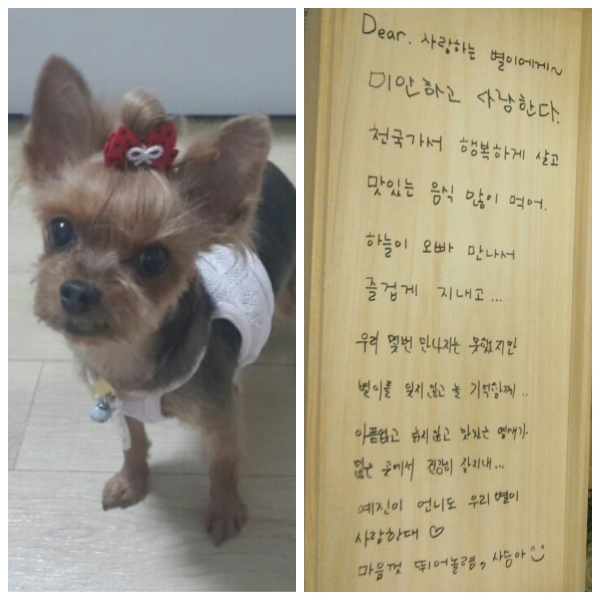 Dear. 사랑하는 별이에게~
미안하고 사랑한다.
천국가서 행복하게 살고
맛있는 음식 많이 먹어.
하늘이 오빠 만나서
즐겁게 지내고...
우리 몇번 만나지는 못했지만
별이를 잊지않고 늘 기억할께..
아픔없고 늙지않고 맛있는 열매가
많은 곳에서 건강히 잘지내...
예진이 언니도 우리 별이
사랑한대 ♡
마음껏 뛰어놀렴,